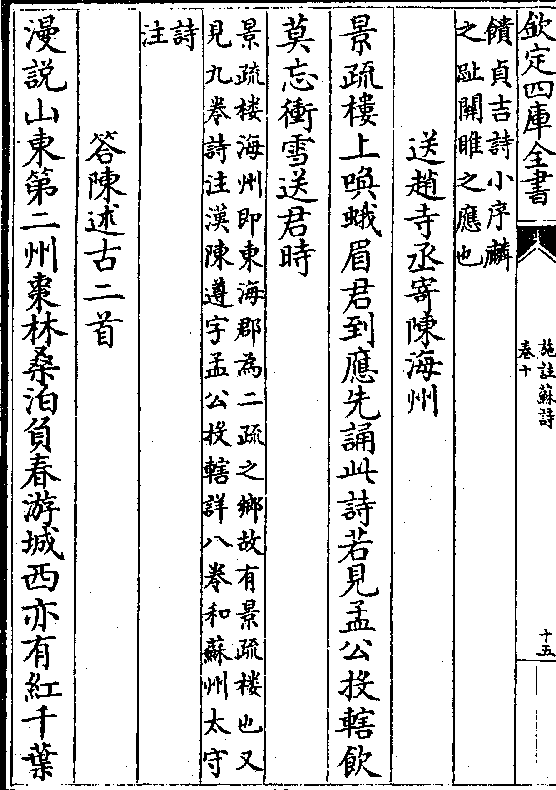 欽定四庫全書
施註蘇詩
卷十
十五
饋貞吉詩小序麟
之趾關雎之應也
送趙寺丞寄陳海州
景疏樓上喚蛾眉君到應先誦此詩若見孟公投轄飲
莫忘衝雪送君時
景疏樓海州即東海郡為二疏之鄉故有景疏樓也又
見九卷詩注漢陳遵字孟公投轄詳八卷和蘇州太守
詩
注
答陳述古二首
漫説山東第二州棗林桑泊負春游城西亦有紅千葉